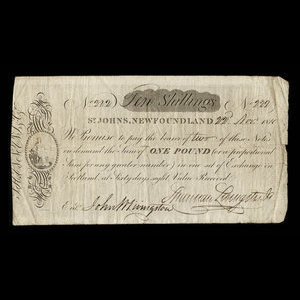 No 222 Ten Shillings No 222
ST JOHNS, NEWFOUNDLAND 22 Dec
We Promise to pay the bearer of two of these Notes
on demand the Sum of ONE POUND (or a proportional
Sum for any greater number) in our set of Exchange on
Scotland, at Sixty days sight. Value Received.
Ent. John Livingston